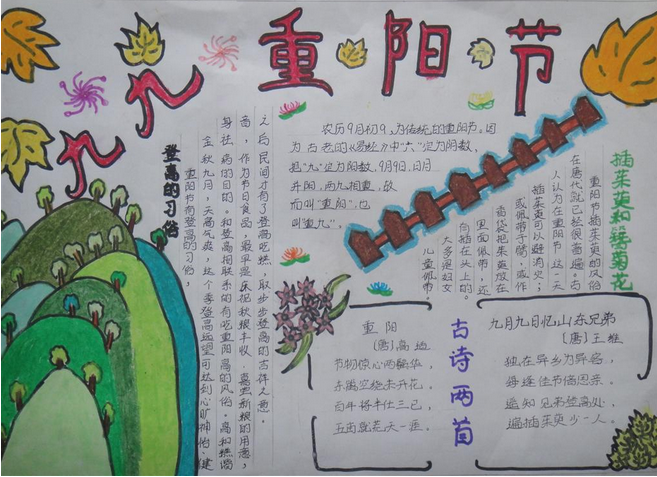 九九重阳节
农历9月初9,为传统的重阳节。因
为古老的《易经》中"六"定为阴数,
把"九"定为阳数,9月9日,日月
并阳,两九相重,故
而叫"重阳",也
叫"重九"。
登高的习俗
重阳节有登高的习俗,
金秋九月,天高气爽,这个季登高远望可达到心旷神怡、健
身祛病的目的。和登高相联系的有吃重阳高的风俗。高和糕谐
音,作为节日食品,最早是庆祝秋粮丰收、喜尝新粮的用意,
之后民间才有了登高吃糕,取步步登高的吉祥之意。
插茱萸和簪菊花
重阳节插茱萸的风俗
在唐代就已经很普遍。古
人认为在重阳节这一天
插茱萸可以避消灾;
或佩带于臂,或作
香袋把茱萸放在
里面佩带,还
有插在头上的。
大多是妇女
儿童佩带。
古诗两首
重阳
(唐)高
节物惊心两鬓华,
东篱空绕未开花。
百年将半仕三已,
五亩就荒天一涯。
九月九日忆山东兄弟
[唐]王维
独在异乡为异客,
每逢佳节倍思亲。
遥知兄弟登高处,
遍插茱萸少一人。